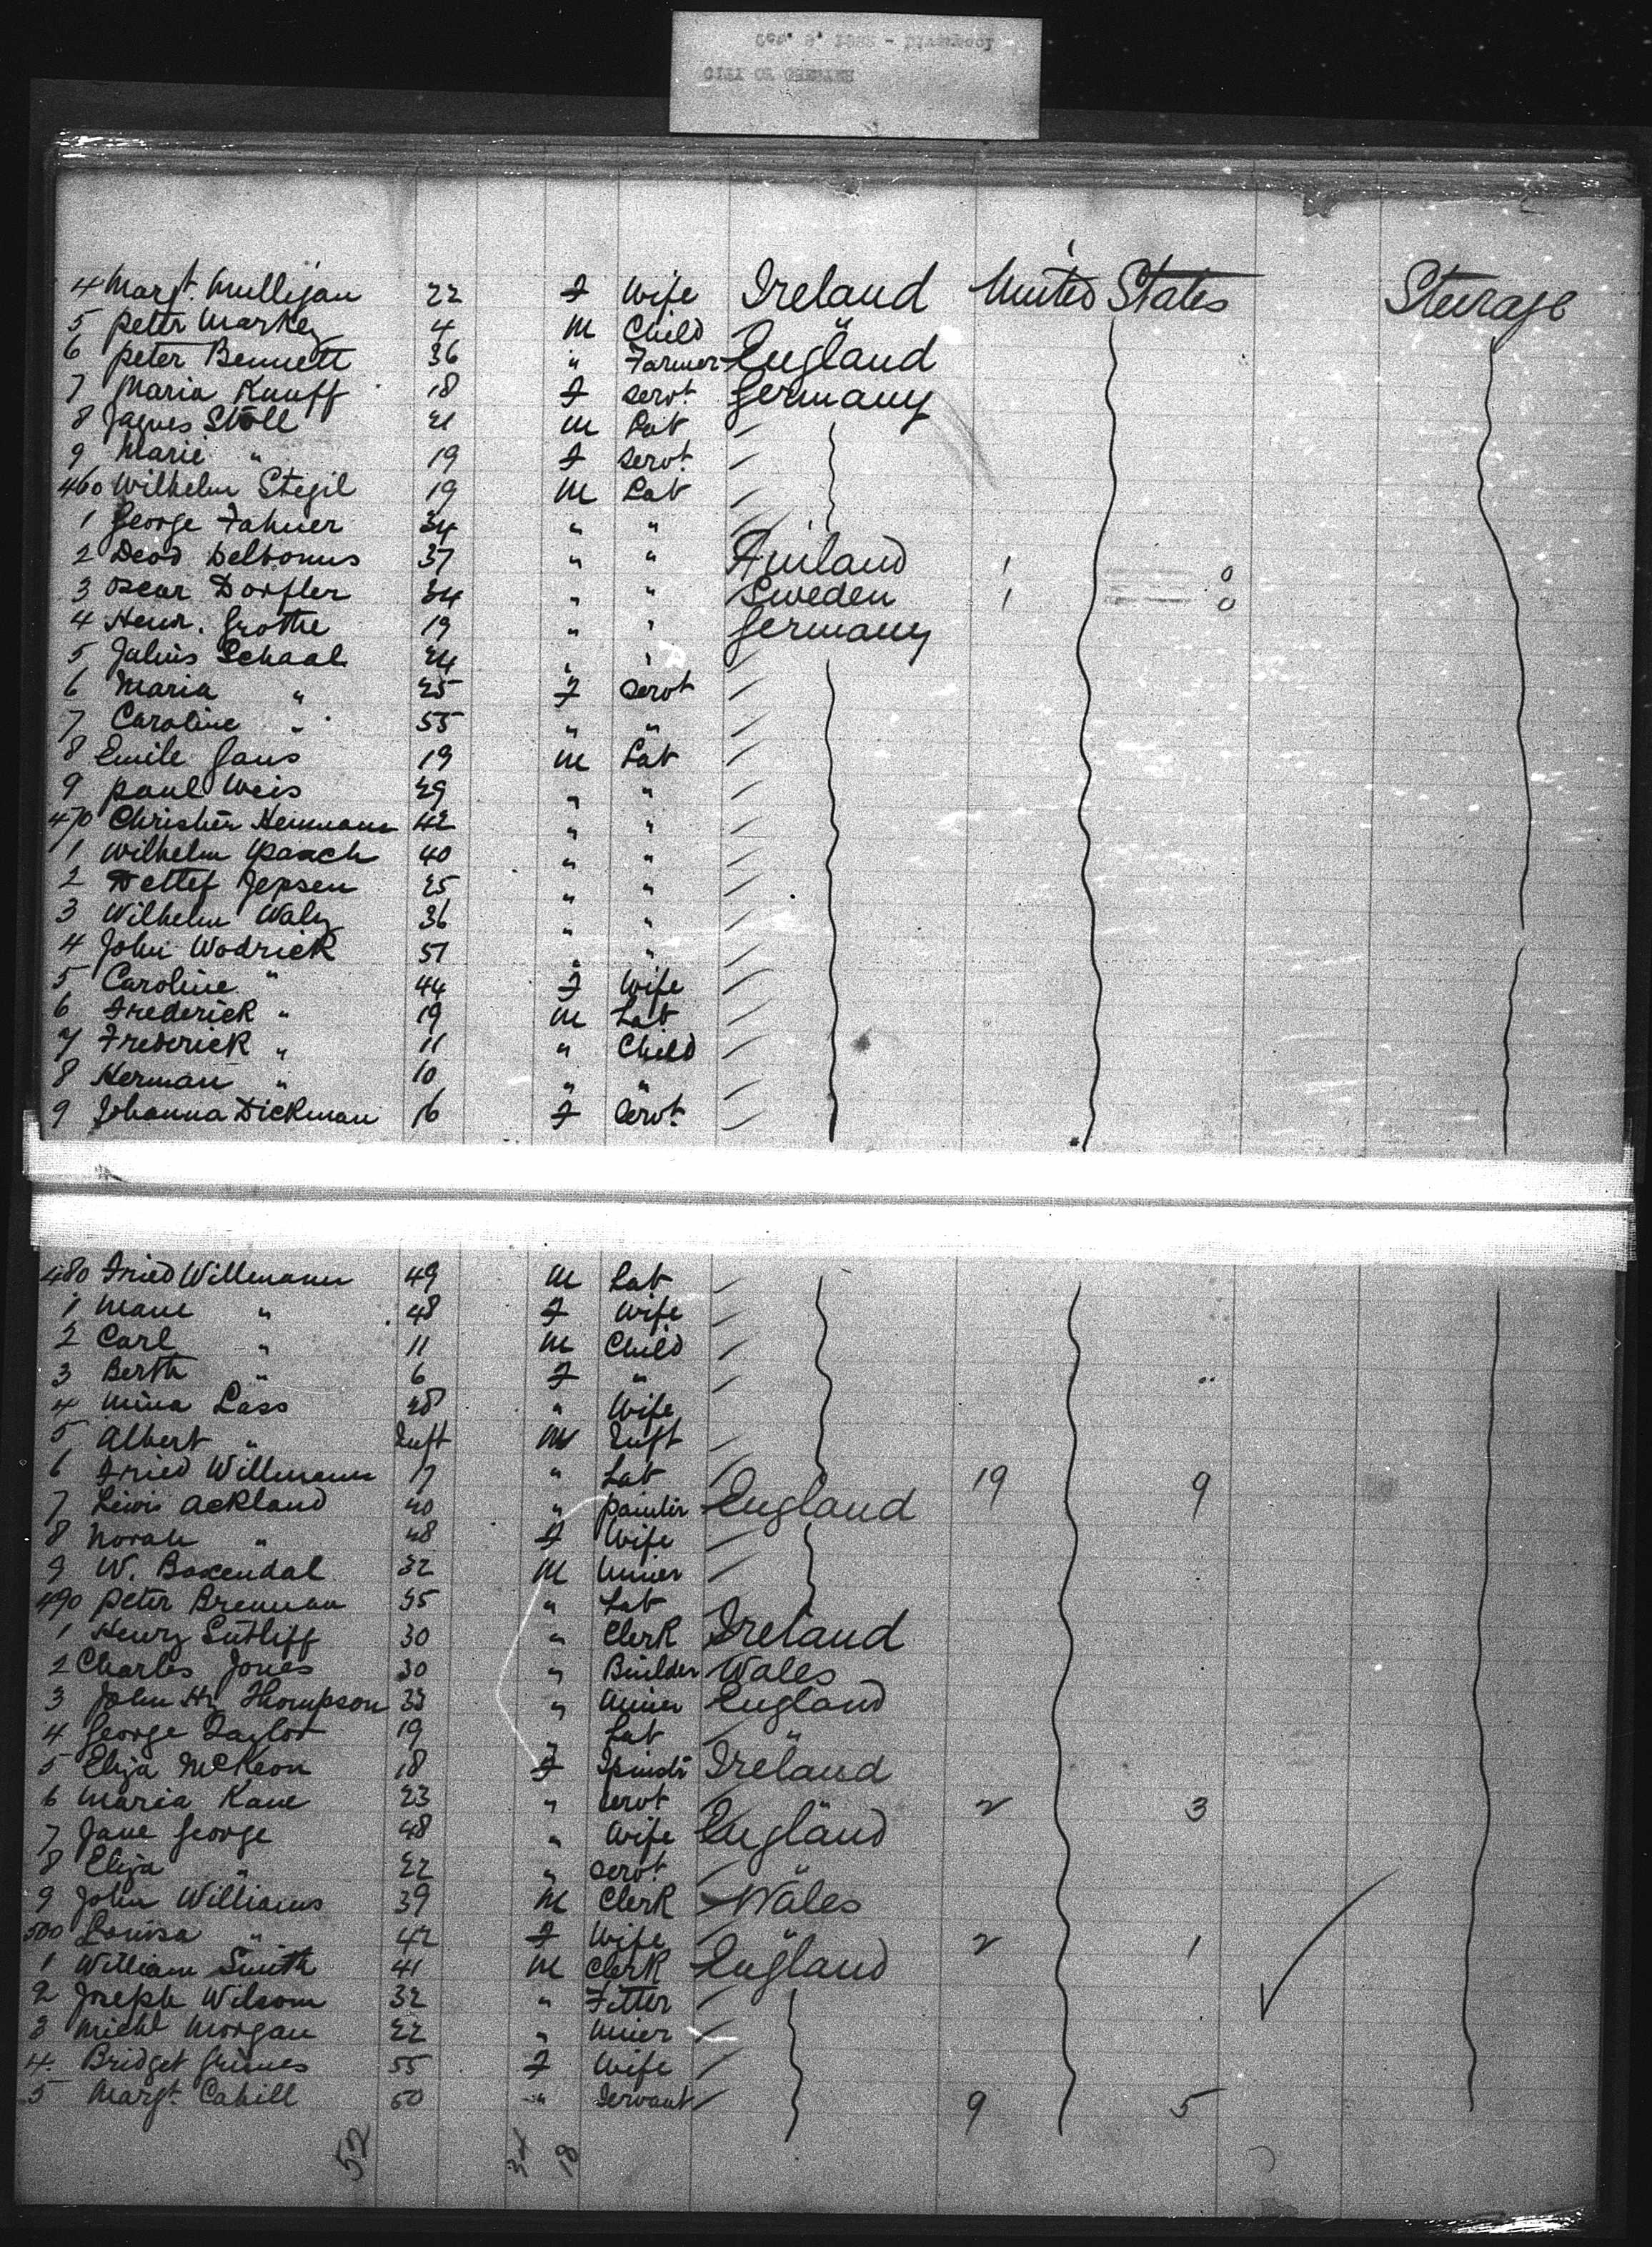 CITY OF
4 Margt. Mulligan 22 F Wife Ireland United States Steerage
5 Peter Markey 4 M Child "
6 Peter Bennett 36 " Farmer England
7 Maria Knuff 18 F Servt Germany
8 Jaques Stoll 21 M Lab
9 Marie " 19 F Servt.
460 Wilhelm Stegil 19 M Lab
1 George Fahner 34 " "
2 37 " " Finland 1 0
3 Oscar Dorfler 34 " " Sweden 1 0
4 Henr. Grothe 19 " " Germany
5 Julius Schaal 24 " "
6 Maria " 25 F Servt
7 Caroline " 55 " "
8 Emile Gaus 19 M Lab
9 Paul Weis 29 " "
470 Hermann 42 " "
1 Wilhelm Paasch 40 " "
2 Detlef Jepsen 25 " "
3 Wilhelm Walz 36 " "
4 John Wodrick 51 " "
5 Caroline " 44 F Wife
6 Frederick " 19 M Lab
7 Frederick " 11 " Child
8 Herman " 10 " "
9 Johanna Dickman 16 F Servt.
480 Fried Willmann 49 M Lab
1 " 48 F Wife
2 Carl " 11 M Child
3 Berth " 6 F "
4 Mina Lass 28 " Wife
5 Albert " Inft M Inft
6 Fried Willmann 17 " Lab 19 9
7 Lewis Ackland 40 " Painter England
8 Norah " 48 F Wife
9 W. Baxendal 32 M Miner
490 Peter Brennan 35 " Lab
1 Henry Sutliff 30 " Clerk Ireland
2 Charles Jones 30 " Builder Wales
3 John Hy Thompson 33 " Miner England
4 George Taylor 19 " Lab "
5 Eliza McKeon 18 F Ireland
6 Maria Kane 23 " Servt 2 3
7 Jane George 48 " Wife England
8 Eliza " 22 " Servt. "
9 John Williams 39 M Clerk Wales
500 Louisa " 42 F Wife " 2 1
1 William Smith 41 M Clerk England
2 Joseph Wilsom 32 " Fitter
3 Michl Morgan 22 " Miner
4. Bridget Grimes 55 F Wife
5 Margt. Cahill 50 " Servant 9 5
52 34 18